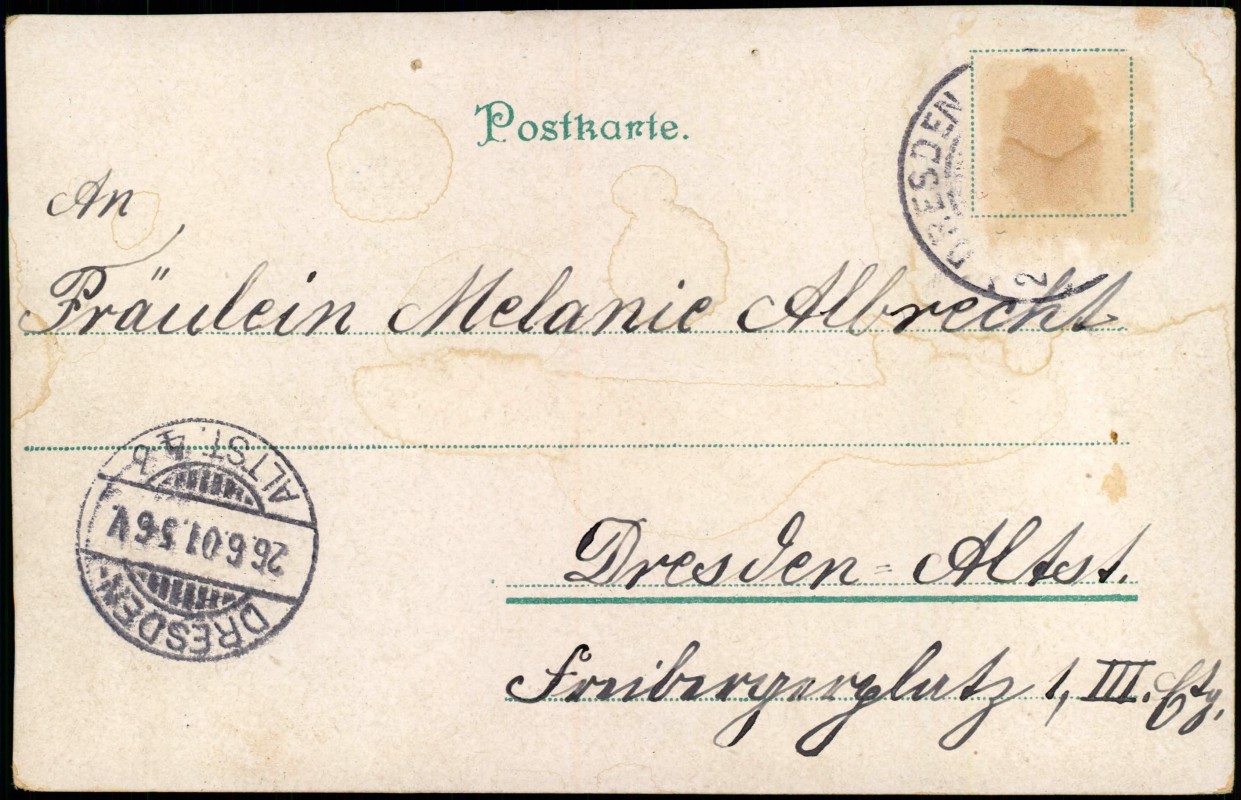 Postkarte.
DRESDEN
2
An
Fräulein Melanie Albrecht
DRESDEN.
26.6.01.5-6V.
ALTST. 4
Dresden=Altst.
Freibergerplatz 1, III.